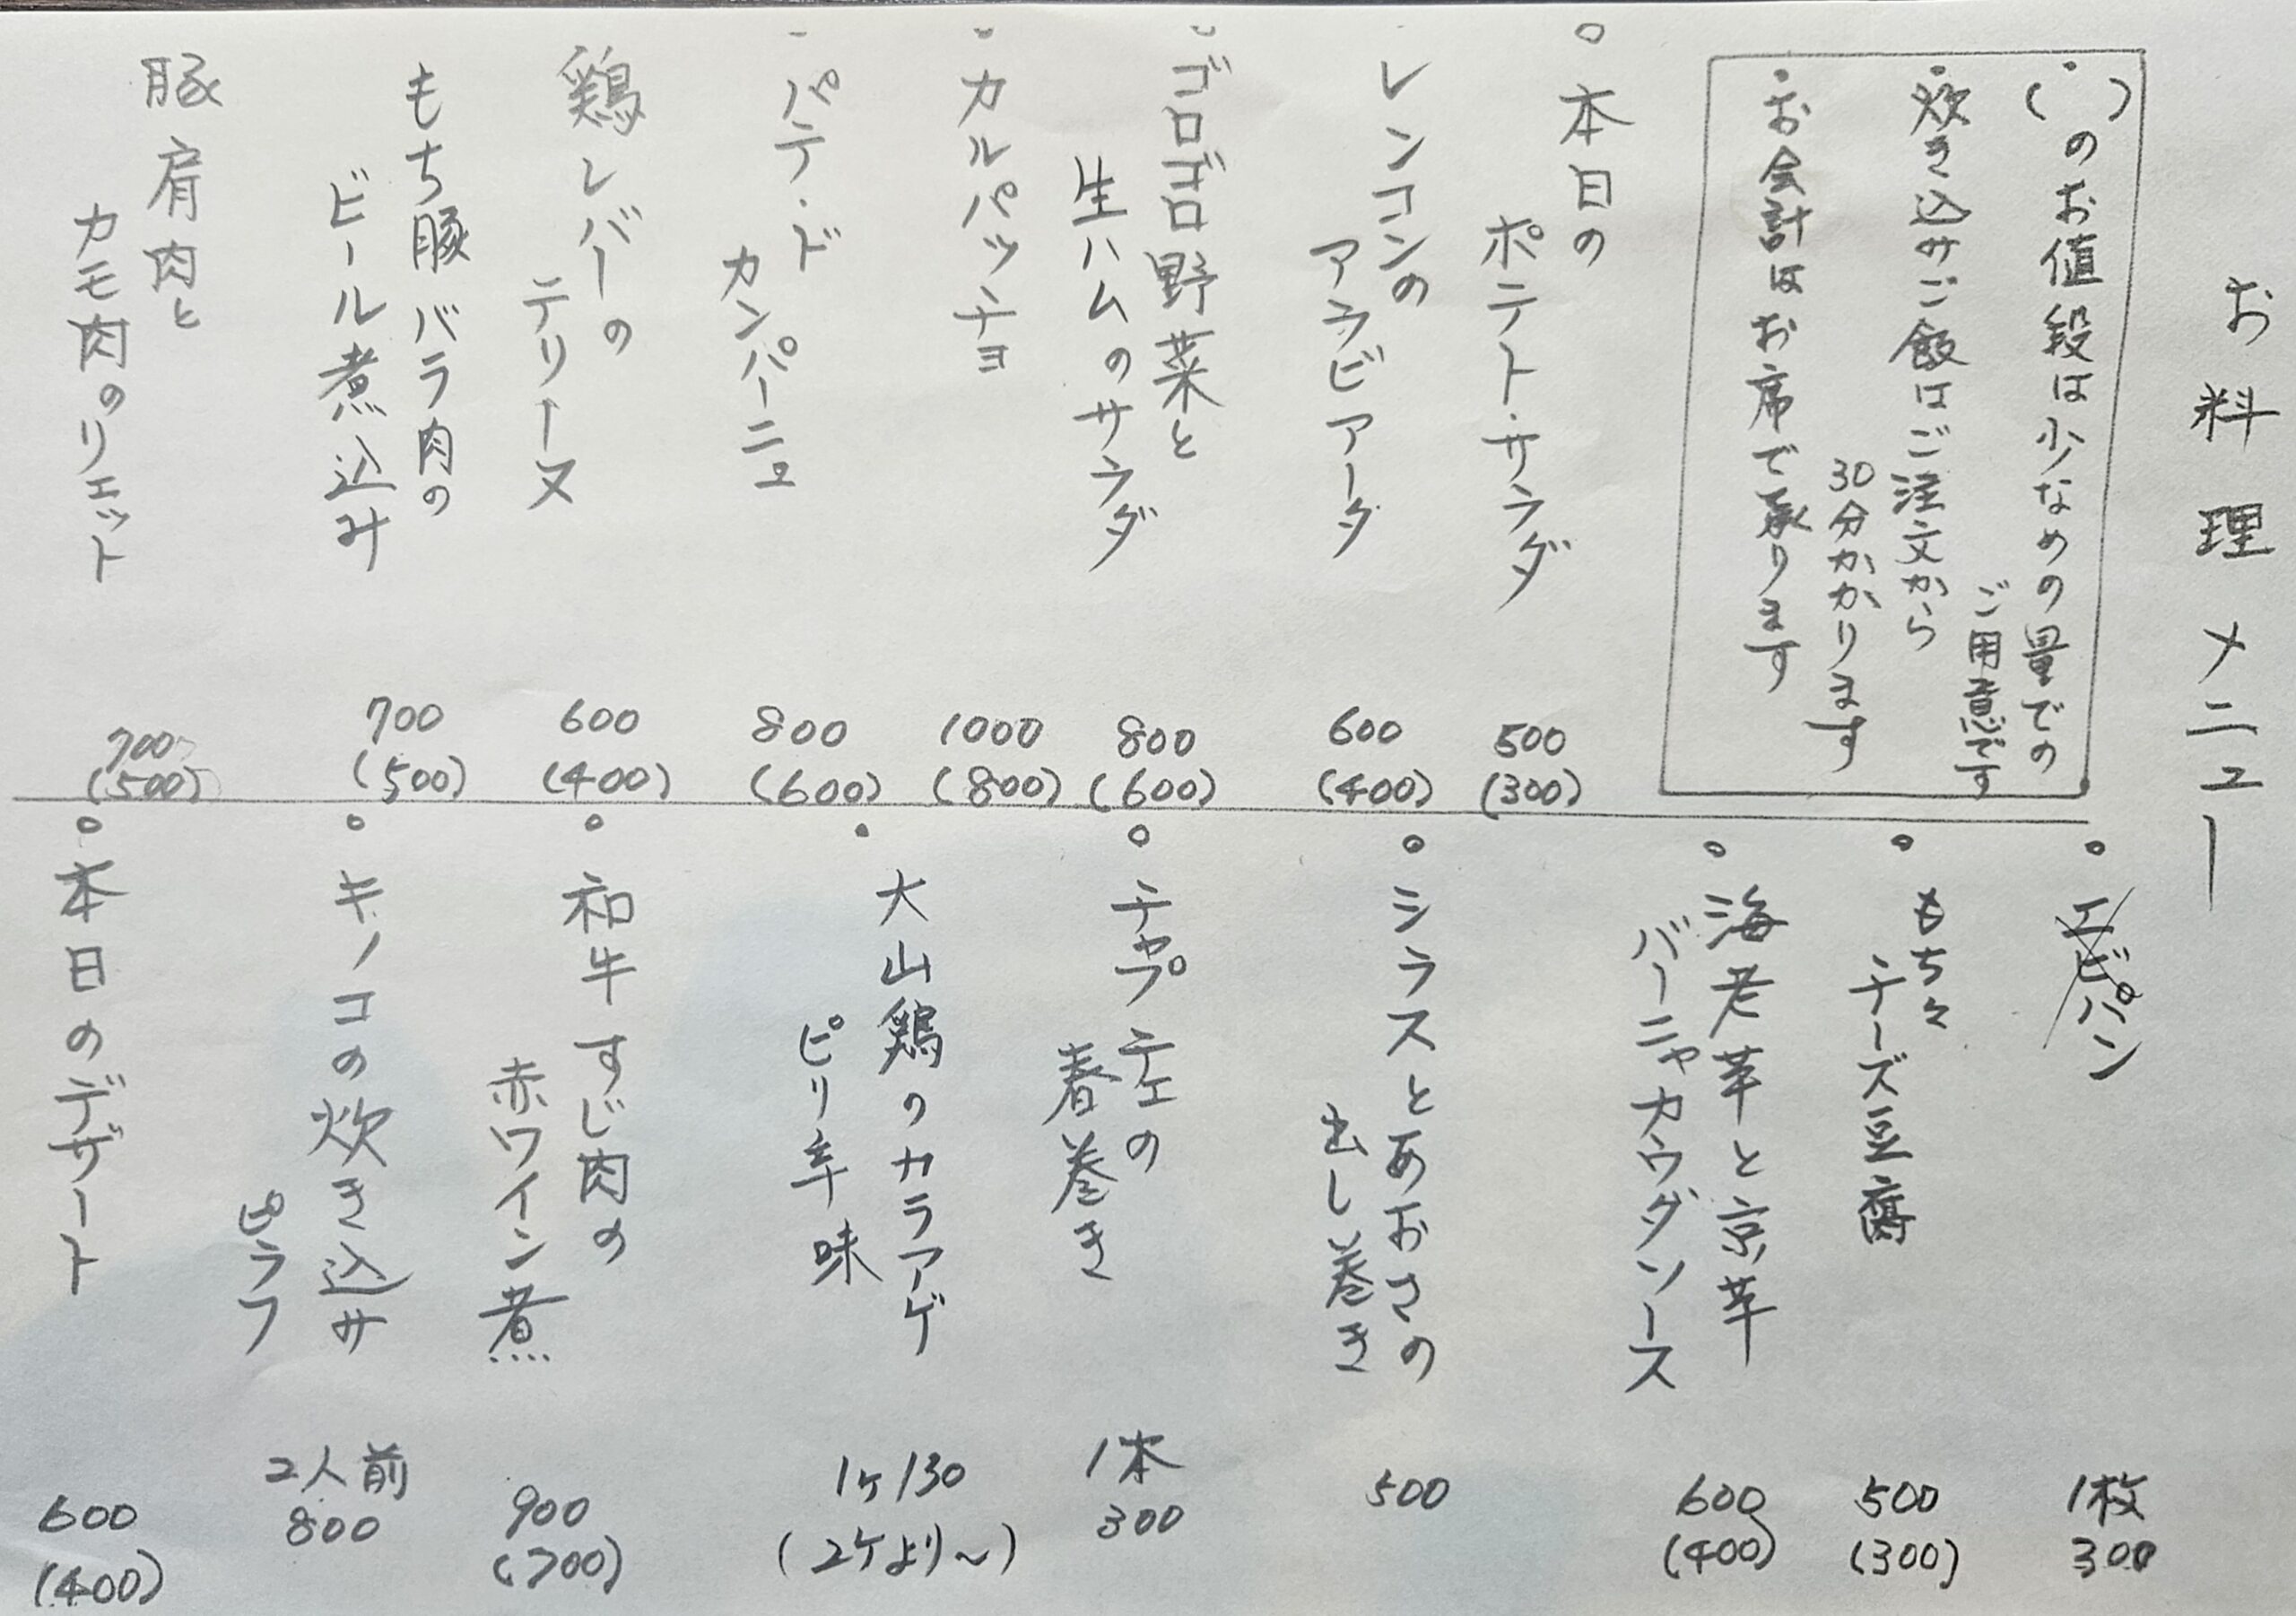 お料理メニュー
・( )のお値段は少なめの量での
ご用意です
・炊き込みご飯はご注文から
30分かかります
・お会計はお席で承ります
。本日の
ポテト・サラダ
500
(300)
・レンコンの
アラビアータ
600
(400)
・ゴロゴロ野菜と
生ハムのサラダ
800
(600)
・カルパッチョ
1000
(800)
・パテ・ド
カンパーニュ
800
(600)
鶏レバーの
テリーヌ
600
(400)
もち豚バラ肉の
ビール煮込み
700
(500)
豚肩肉と
カモ肉のリエット
700
(500)
。エビパン
1枚
300
。もち々
チーズ豆腐
500
(300)
。海老芋と京芋
バーニャカウダソース
600
(400)
。シラスとあおさの
出し巻き
500
。チャプチェの
春巻き
1本
300
・大山鶏のカラアゲ
ピリ辛味
1ケ130
(2ケより〜)
。和牛すじ肉の
赤ワイン煮
900
(700)
。キノコの炊き込み
ピラフ
2人前
800
。本日のデザート
600
(400)